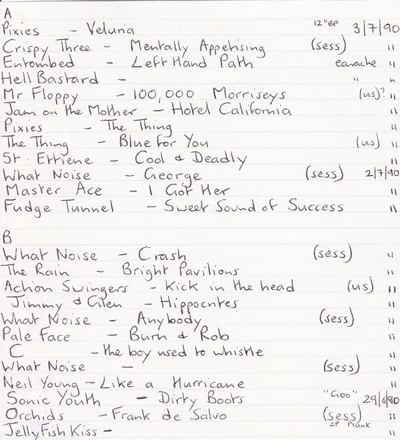 A
Pixies - Veluria 12"ep 3/7/90
Crispy Three - Mentally Appetising (sess) "
Entombed - Left Hand Path earache "
Hell Bastard - " "
Mr Floppy - 100,000 Morriseys (us)? "
Jam on the Mother - Hotel California "
Pixies - The Thing "
The Thing - Blue for You (us) "
St. Ettiene - Cool & Deadly "
What Noise - George (sess) 2/7/90
Master Ace - I Got Her "
Fudge Tunnel - Sweet Sound of Success "
B
What Noise - Crash (sess) "
The Rain - Bright Pavilions "
Action Swingers - Kick in the head (us) "
Jimmy & Glen - Hippocrites "
What Noise - Anybody (sess) "
Pale Face - Burn & Rob "
C - the boy used to whistle "
What Noise - (sess) "
Neil Young - Like a Hurricane "
Sonic Youth - Dirty Boots "Goo" 29/6/90
Orchids - Frank de Salvo (sess) "
JellyFish Kiss - LP Plank "